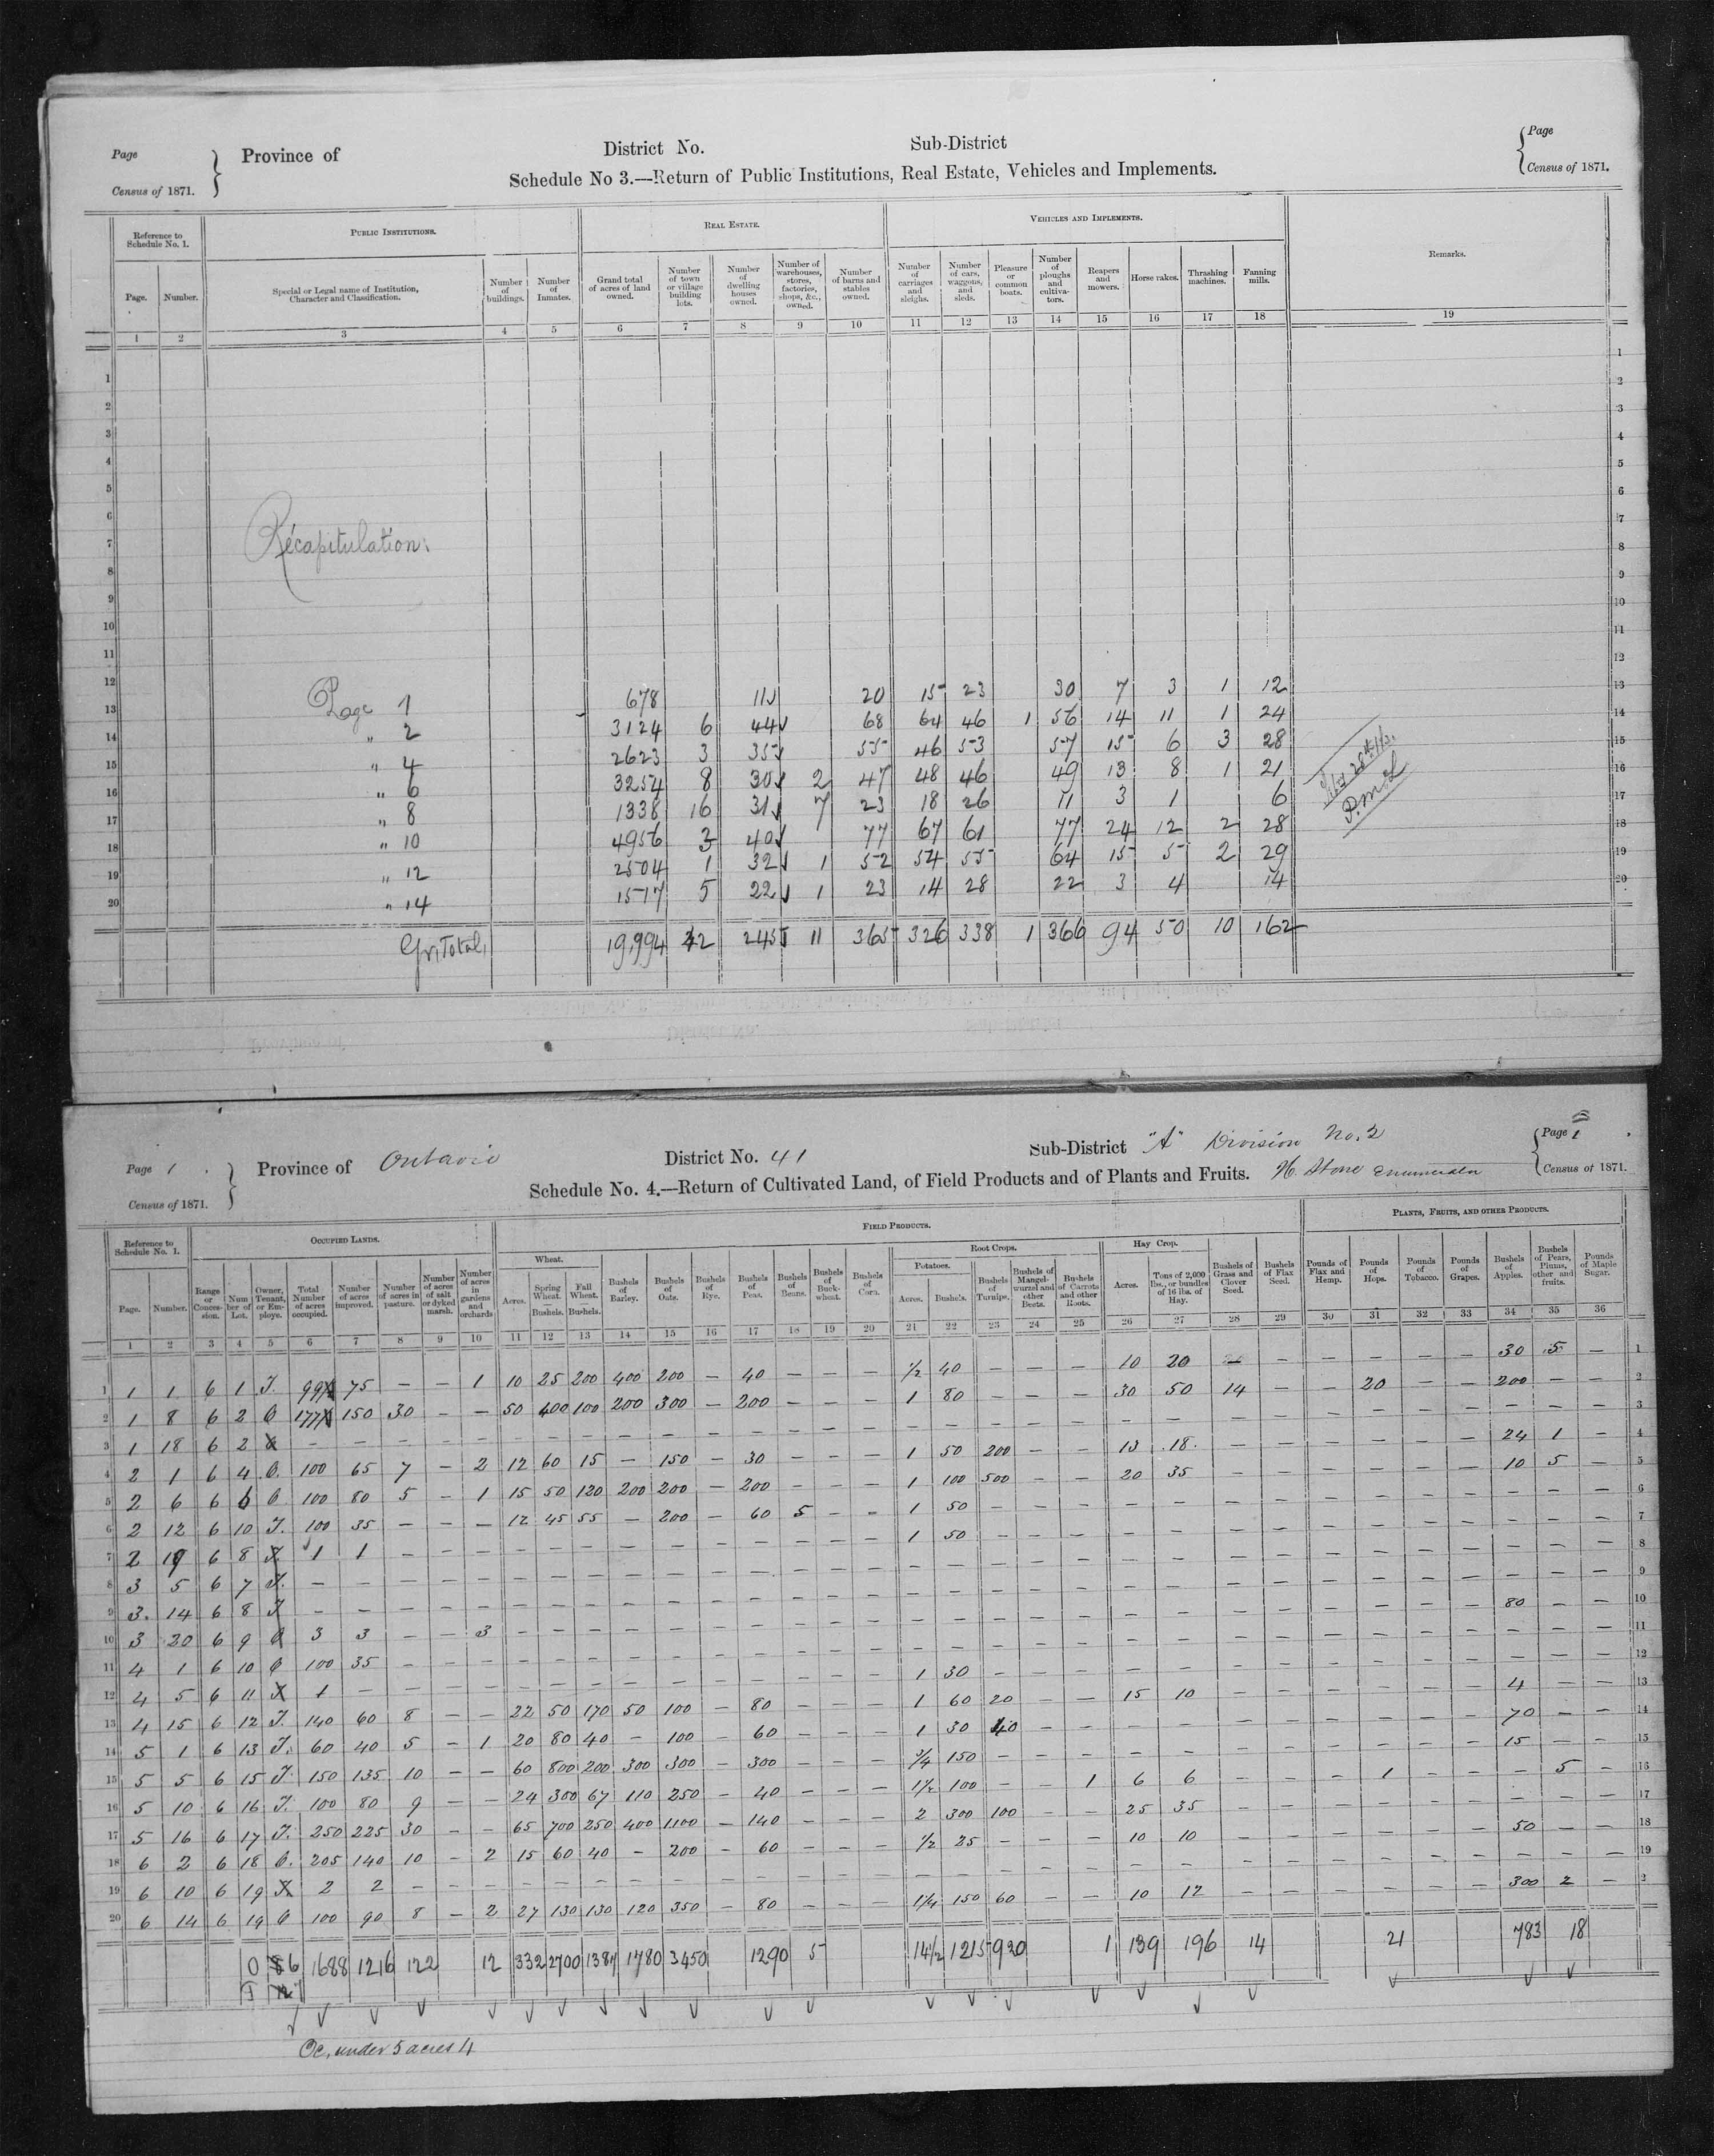 Page
Census of 1871.
Province of
District No.
Sub-District
Page
Census of 1871.
Schedule No 3.—Return of Public Institutions, Real Estate, Vehicles and Implements.
Reference to Schedule No. 1.
Public Institutions.
Real Estate.
Vehicles and Implements.
Remarks.
Page. Number. Special or Legal name of Institution, Character and Classification. Number of buildings. Number of Inmates. Grand total of acres of land owned. Number of town or village building lots. Number of dwelling houses owned. Number of warehouses, stores, factories, shops, &c., owned. Number of barns and stables owned. Number of carriages and sleighs. Number of cars, waggons, and sleds. Pleasure or common boats. Number of ploughs and cultiva-tors. Reapers and mowers. Horse rakes. Thrashing machines. Fanning mills.
1 2 3 4 5 6 7 8 9 10 11 12 13 14 15 16 17 18 19
1 1
2 2
3 3
4 4
5 5
6 6
7 7
Récapitulation
8 8
9 9
10 10
11 11
12 12
13 Page 1 678 11 20 15 23 30 7 3 1 12 13
14 " 2 3124 6 44 68 64 46 1 56 14 11 1 24 14
15 " 4 2623 3 35 55 46 53 57 15 6 3 28 15
16 " 6 3254 8 30 2 47 48 46 49 13 8 1 21 16
17 " 8 1338 16 31 7 23 18 26 11 3 1 6 17
18 " 10 4956 3 40 77 67 61 77 24 12 2 28 18
19 " 12 2504 1 32 1 52 54 55 64 15 5 2 29 19
20 " 14 1517 5 22 1 23 14 28 22 3 4 14 20
Gr, Total, 19,994 42 245 11 365 326 338 1 366 94 50 10 162
Page 1
Census of 1871.
Province of Ontario
District No. 41
Sub-District "A" Division No. 2
Page 1
Census of 1871.
Schedule No. 4.—Return of Cultivated Land, of Field Products and of Plants and Fruits. H. Stone Enumerator
Reference to Schedule No. 1.
Occupied Lands.
Field Products.
Plants, Fruits, and other Products.
Wheat.
Root Crops.
Potatoes.
Hay Crop.
Page. Number. Range or Conces-sion. Num ber of Lot. Owner, Tenant, or Em-ploye. Total Number of acres occupied. Number of acres improved. Number of acres in pasture. Number of acres of salt or dyked marsh. Number of acres in gardens and orchards Acres. Spring Wheat.—Bushels. Fall Wheat.—Bushels. Bushels of Barley. Bushels of Oats. Bushels of Rye. Bushels of Peas. Bushels of Beans. Bushels of Buck-wheat. Bushels of Corn. Acres. Bushels. Bushels of Turnips. Bushels of Mangel-wurzel and other Beets. Bushels of Carrots and other Roots. Acres. Tons of 2,000 lbs., or bundles of 16 lbs. of Hay. Bushels of Grass and Clover Seed. Bushels of Flax Seed. Pounds of Flax and Hemp. Pounds of Hops. Pounds of Tobacco. Pounds of Grapes. Bushels of Apples. Bushels of Pears, Plums, other and fruits. Pounds of Maple Sugar.
1 2 3 4 5 6 7 8 9 10 11 12 13 14 15 16 17 18 19 20 21 22 23 24 25 26 27 28 29 30 31 32 33 34 35 36
1 1 1 6 1 T. 99 75 — — 1 10 25 200 400 200 — 40 — — — 1/2 40 — — — 10 20 — — — — — 30 5 — 1
2 1 8 6 2 O 177 150 30 — — 50 400 100 200 300 — 200 — — — 1 80 — — — 30 50 14 — — 20 — — 200 — — 2
3 1 18 6 2 — — — — — — — — — — — — — — — — — — — — — — — — — — — — — — — 3
4 2 1 6 4 O. 100 65 7 — 2 12 60 15 — 150 — 30 — — — 1 50 200 — — 13 18 — — — — — — 24 1 — 4
5 2 6 6 6 O 100 80 5 — 1 15 50 120 200 200 — 200 — — — 1 100 500 — — 20 35 — — — — — — 10 5 — 5
6 2 12 6 10 T. 100 35 — — — 12 45 55 — 200 — 60 5 — — 1 50 — — — — — — — — — — — — — — 6
7 2 19 6 8 T. 1 1 — — — — — — — — — — — — — 1 50 — — — — — — — — — — — — — — 7
8 3 5 6 7 T. — — — — — — — — — — — — — — — — — — — — — — — — — — — — — — — 8
9 3. 14 6 8 T — — — — — — — — — — — — — — — — — — — — — — — — — — — — — — — 9
10 3 20 6 9 O 3 3 — — 3 — — — — — — — — — — — — — — — — — — — — — — — 80 — — 10
11 4 1 6 10 O 100 35 — — — — — — — — — — — — — — — — — — — — — — — — — — — — — 11
12 4 5 6 11 T 1 — — — — — — — — — — — — — — 1 30 — — — — — — — — — — — — — — 12
13 4 15 6 12 T. 140 60 8 — — 22 50 170 50 100 — 80 — — — 1 60 20 — — 15 10 — — — — — — 4 — — 13
14 5 1 6 13 T. 60 40 5 — 1 20 80 40 — 100 — 60 — — — 1 30 40 — — — — — — — — — — 70 — — 14
15 5 5 6 15 T. 150 135 10 — — 60 800 200 300 300 — 300 — — — 3/4 150 — — — — — — — — — — — 15 — — 15
16 5 10 6 16 T. 100 80 9 — — 24 300 67 110 250 — 40 — — — 1 1/2 100 — — 1 6 6 — — — 1 — — — 5 — 16
17 5 16 6 17 T. 250 225 30 — — 65 700 250 400 1100 — 140 — — — 2 300 100 — — 25 35 — — — — — — — — — 17
18 6 2 6 18 O. 205 140 10 — 2 15 60 40 — 200 — 60 — — — 1/2 25 — — — 10 10 — — — — — — 50 — — 18
19 6 10 6 19 T. 2 2 — — — — — — — — — — — — — — — — — — — — — — — — — — — — — 19
20 6 14 6 19 O 100 90 8 — 2 27 130 130 120 350 — 80 — — — 1 1/4 150 60 — — 10 12 — — — — — — 300 2 — 2
O 6 1688 1216 122 12 332 2700 1387 1780 3450 1290 5 14 1/2 1215 920 1 139 196 14 21 783 18
T
Oc, under 5 acres 4